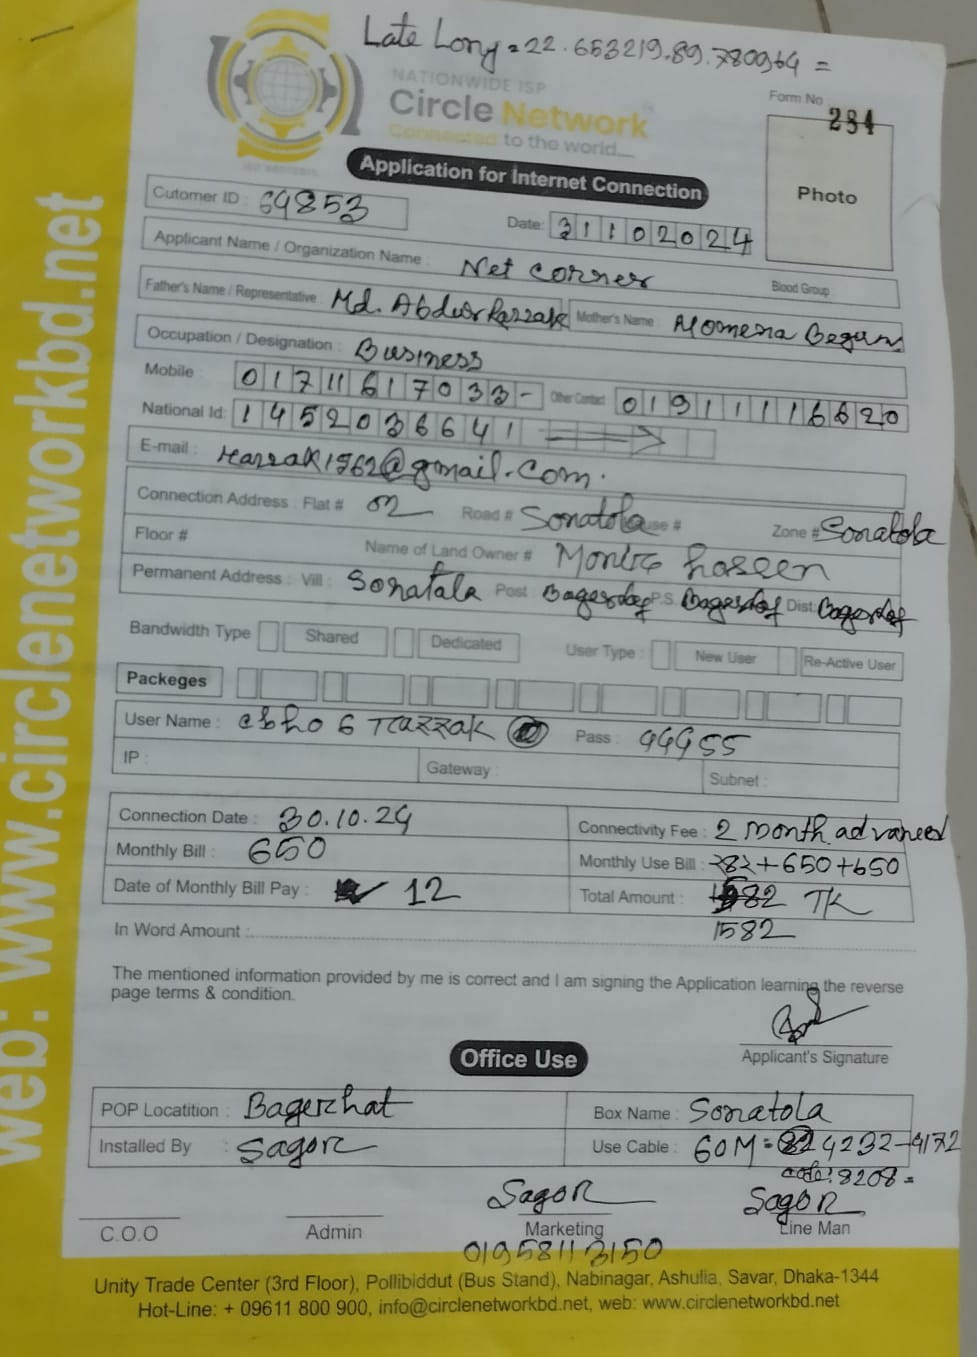 Late Long = 22.653219,89.780964 =
NATIONWIDE ISP
Circle Network
Connected to the world...
Form No. 284
Photo
Application for Internet Connection
Cutomer ID : 69853
Date: 31102024
Applicant Name / Organization Name : Net Corner
Blood Group :
Father's Name / Representative : Md. Abdur Razzak Mother's Name : Momena Begum
Occupation / Designation : Business
Mobile : 01711617033- Other Contact 01911116620
National Id: 1452036641
E-mail : razzak1962@gmail.com.
Connection Address : Flat # 02 Road # Sonatola House # Zone # Sonatola
Floor # Name of Land Owner #
Permanent Address : Vill : Sonatala Post : P.S. Dist:
Bandwidth Type Shared Dedicated User Type : New User Re-Active User
Packeges
User Name : Razzak Pass : 99955
IP : Gateway : Subnet :
Connection Date : 30.10.24 Connectivity Fee : 2 month advanced
Monthly Bill : 650 Monthly Use Bill : 282+650+650
Date of Monthly Bill Pay : 12 Total Amount : TK
1582
In Word Amount :
The mentioned information provided by me is correct and I am signing the Application learning the reverse
page terms & condition.
Applicant's Signature
Office Use
POP Locatition : Bagerhat Box Name : Sonatola
Installed By : Sagor Use Cable : 60M = 4232-4172
code: 8208 =
Sagor Sagor
C.O.O Admin Marketing Line Man
01958113150
Unity Trade Center (3rd Floor), Pollibiddut (Bus Stand), Nabinagar, Ashulia, Savar, Dhaka-1344
Hot-Line: + 09611 800 900, info@circlenetworkbd.net, web: www.circlenetworkbd.net
web: www.circlenetworkbd.net